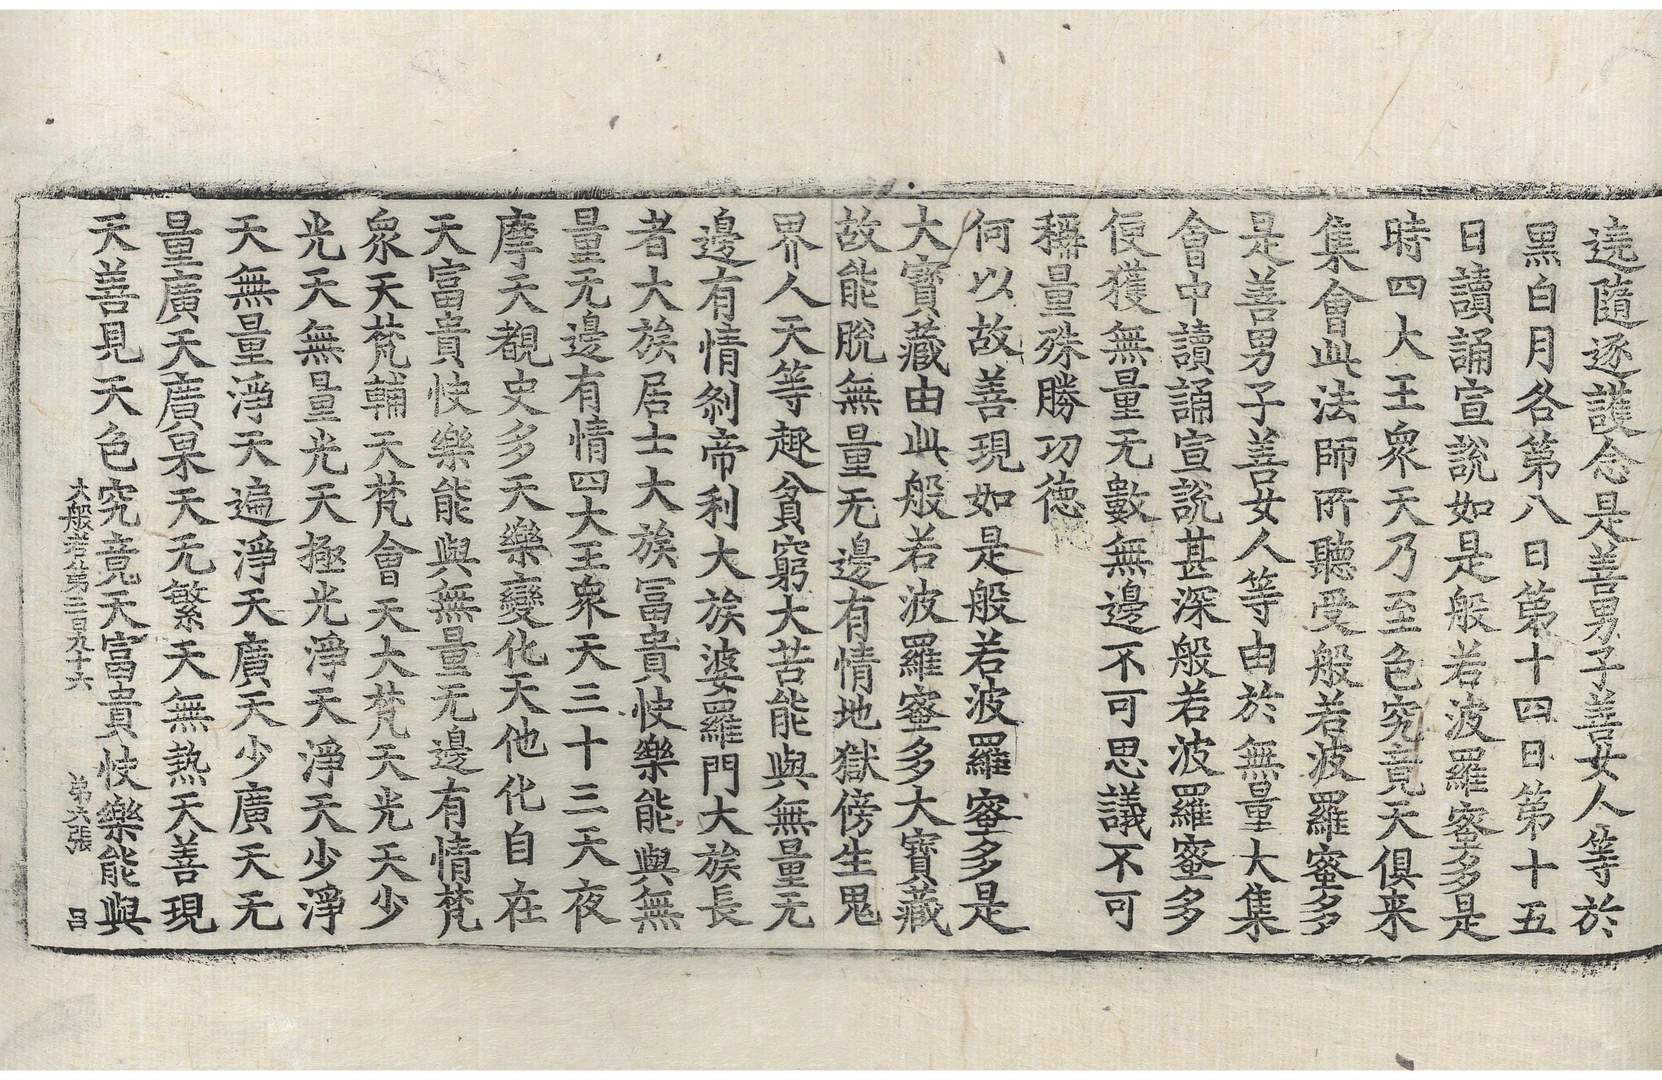 遶隨逐護念是善男子善女人等於
黑白月各第八日第十四日第十五
日讀誦宣說如是般若波羅蜜多是
時四大王衆天乃至色究竟天俱来
集會此法師所聽受般若波羅蜜多
是善男子善女人等由於無量大集
會中讀誦宣說甚深般若波羅蜜多
便獲無量无數無邊不可思議不可
稱量殊勝功德
何以故善現如是般若波羅蜜多是
大寶藏由此般若波羅蜜多大寶藏
故能脫無量无邊有情地獄傍生鬼
界人天等趣貧窮大苦能與無量无
邊有情刹帝利大族婆羅門大族長
者大族居士大族冨貴快樂能與無
量无邊有情四大王衆天三十三天夜
摩天覩史多天樂變化天他化自在
天富貴快樂能與無量无邊有情梵
衆天梵輔天梵會天大梵天光天少
光天無量光天極光淨天淨天少淨
天無量淨天遍淨天廣天少廣天无
量廣天廣果天无繁天無熱天善現
天善見天色究竟天富貴快樂能與
大般若第三百九十六　第六張　吕